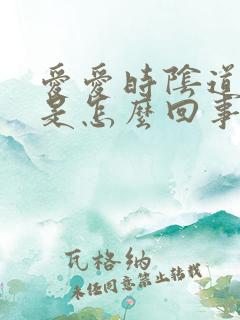 愛愛時陰道
是怎麼回事
瓦格納
未经同意禁止转载